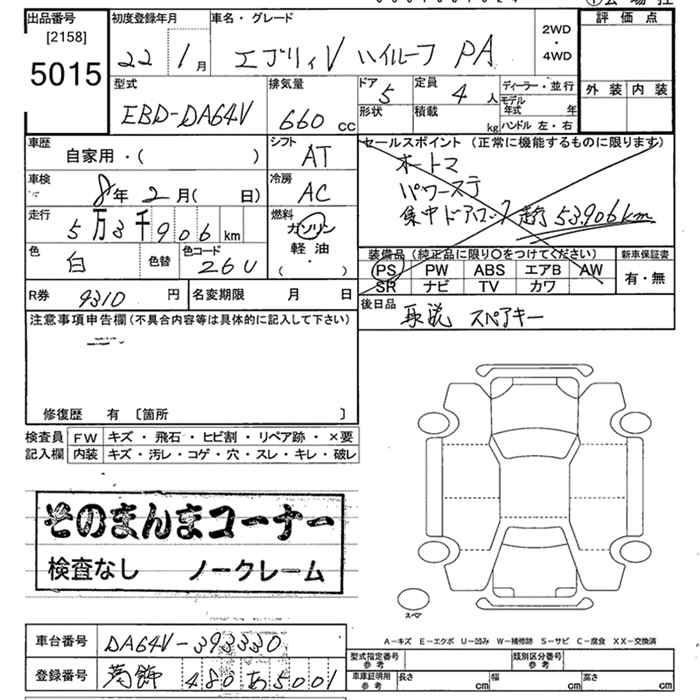 出品番号 初度登録年月 車名・グレード 評価点
[2158] 22 1月 エブリィV ハイルーフ PA 2WD・4WD
5015 外装 内装
型式 排気量 ドア 定員 ディーラー・並行
EBD-DA64V 660cc 5 4人 モデル年式 年
形状 積載 kg ハンドル 左・右
車歴 シフト セールスポイント (正常に機能するものに限ります)
自家用・( ) AT オートマ
車検 冷房 パワーステ
8年 2月( 日) AC 集中ドアロック 53,906km
走行 燃料
5万3千906km ガソリン
色 色替 色コード 軽油
白 26U ( ・ )
装備品 (純正品に限り○をつけてください) 新車保証書
PS PW ABS エアB AW 有・無
SR ナビ TV カワ
R券 9310円 名変期限 月 日 後日品
注意事項申告欄(不具合内容等は具体的に記入して下さい) スペアキー
修復歴 有 〔箇所 〕
検査員 FW キズ・飛石・ヒビ割・リペア跡・×要
記入欄 内装 キズ・汚レ・コゲ・穴・スレ・キレ・破レ
そのまんまコーナー
検査なし ノークレーム
スペア
A-キズ E-エクボ U-凹み W-補修跡 S-サビ C-腐食 XX-交換済
車台番号 DA64V-393330 型式指定番号 参考 類別区分番号 参考
登録番号 葛飾 480 あ 5001 車庫証明用 参考 長さ cm 幅 cm 高さ cm